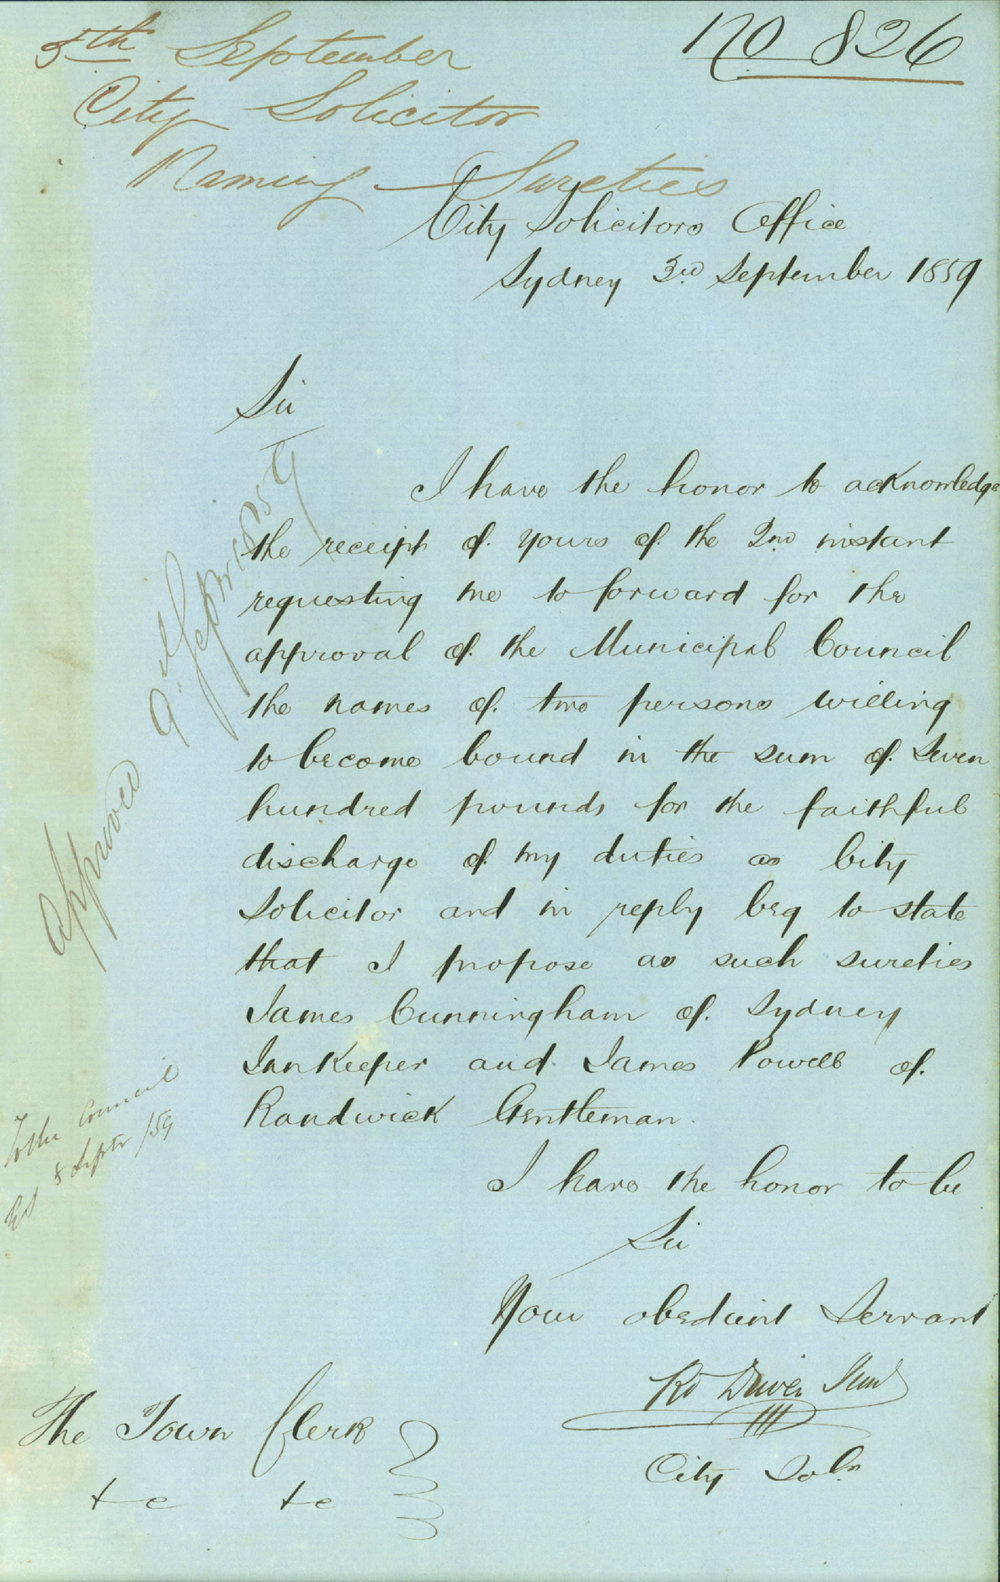 5th September
City Solicitor
Naming Sureties
No 826
City Solicitors Office
Sydney 3rd September 1859
Sir
I have the honor to acknowledge
the receipt of yours of the 2nd instant
requesting me to forward for the
approval of the Municipal Council
the names of two persons willing
to become bound in the sum of Seven
hundred pounds for the faithful
discharge of my duties as City
Solicitor and in reply beg to state
that I propose as such sureties
James Cunningham of Sydney
InnKeeper and James Powell of
Randwick Gentleman.
I have the honor to be
Sir
Your obedient Servant
Rd Driver Junr
City Solr
The Town Clerk
&c &c
Approved
9th Septr 1859
To the Council
8 Septr /59